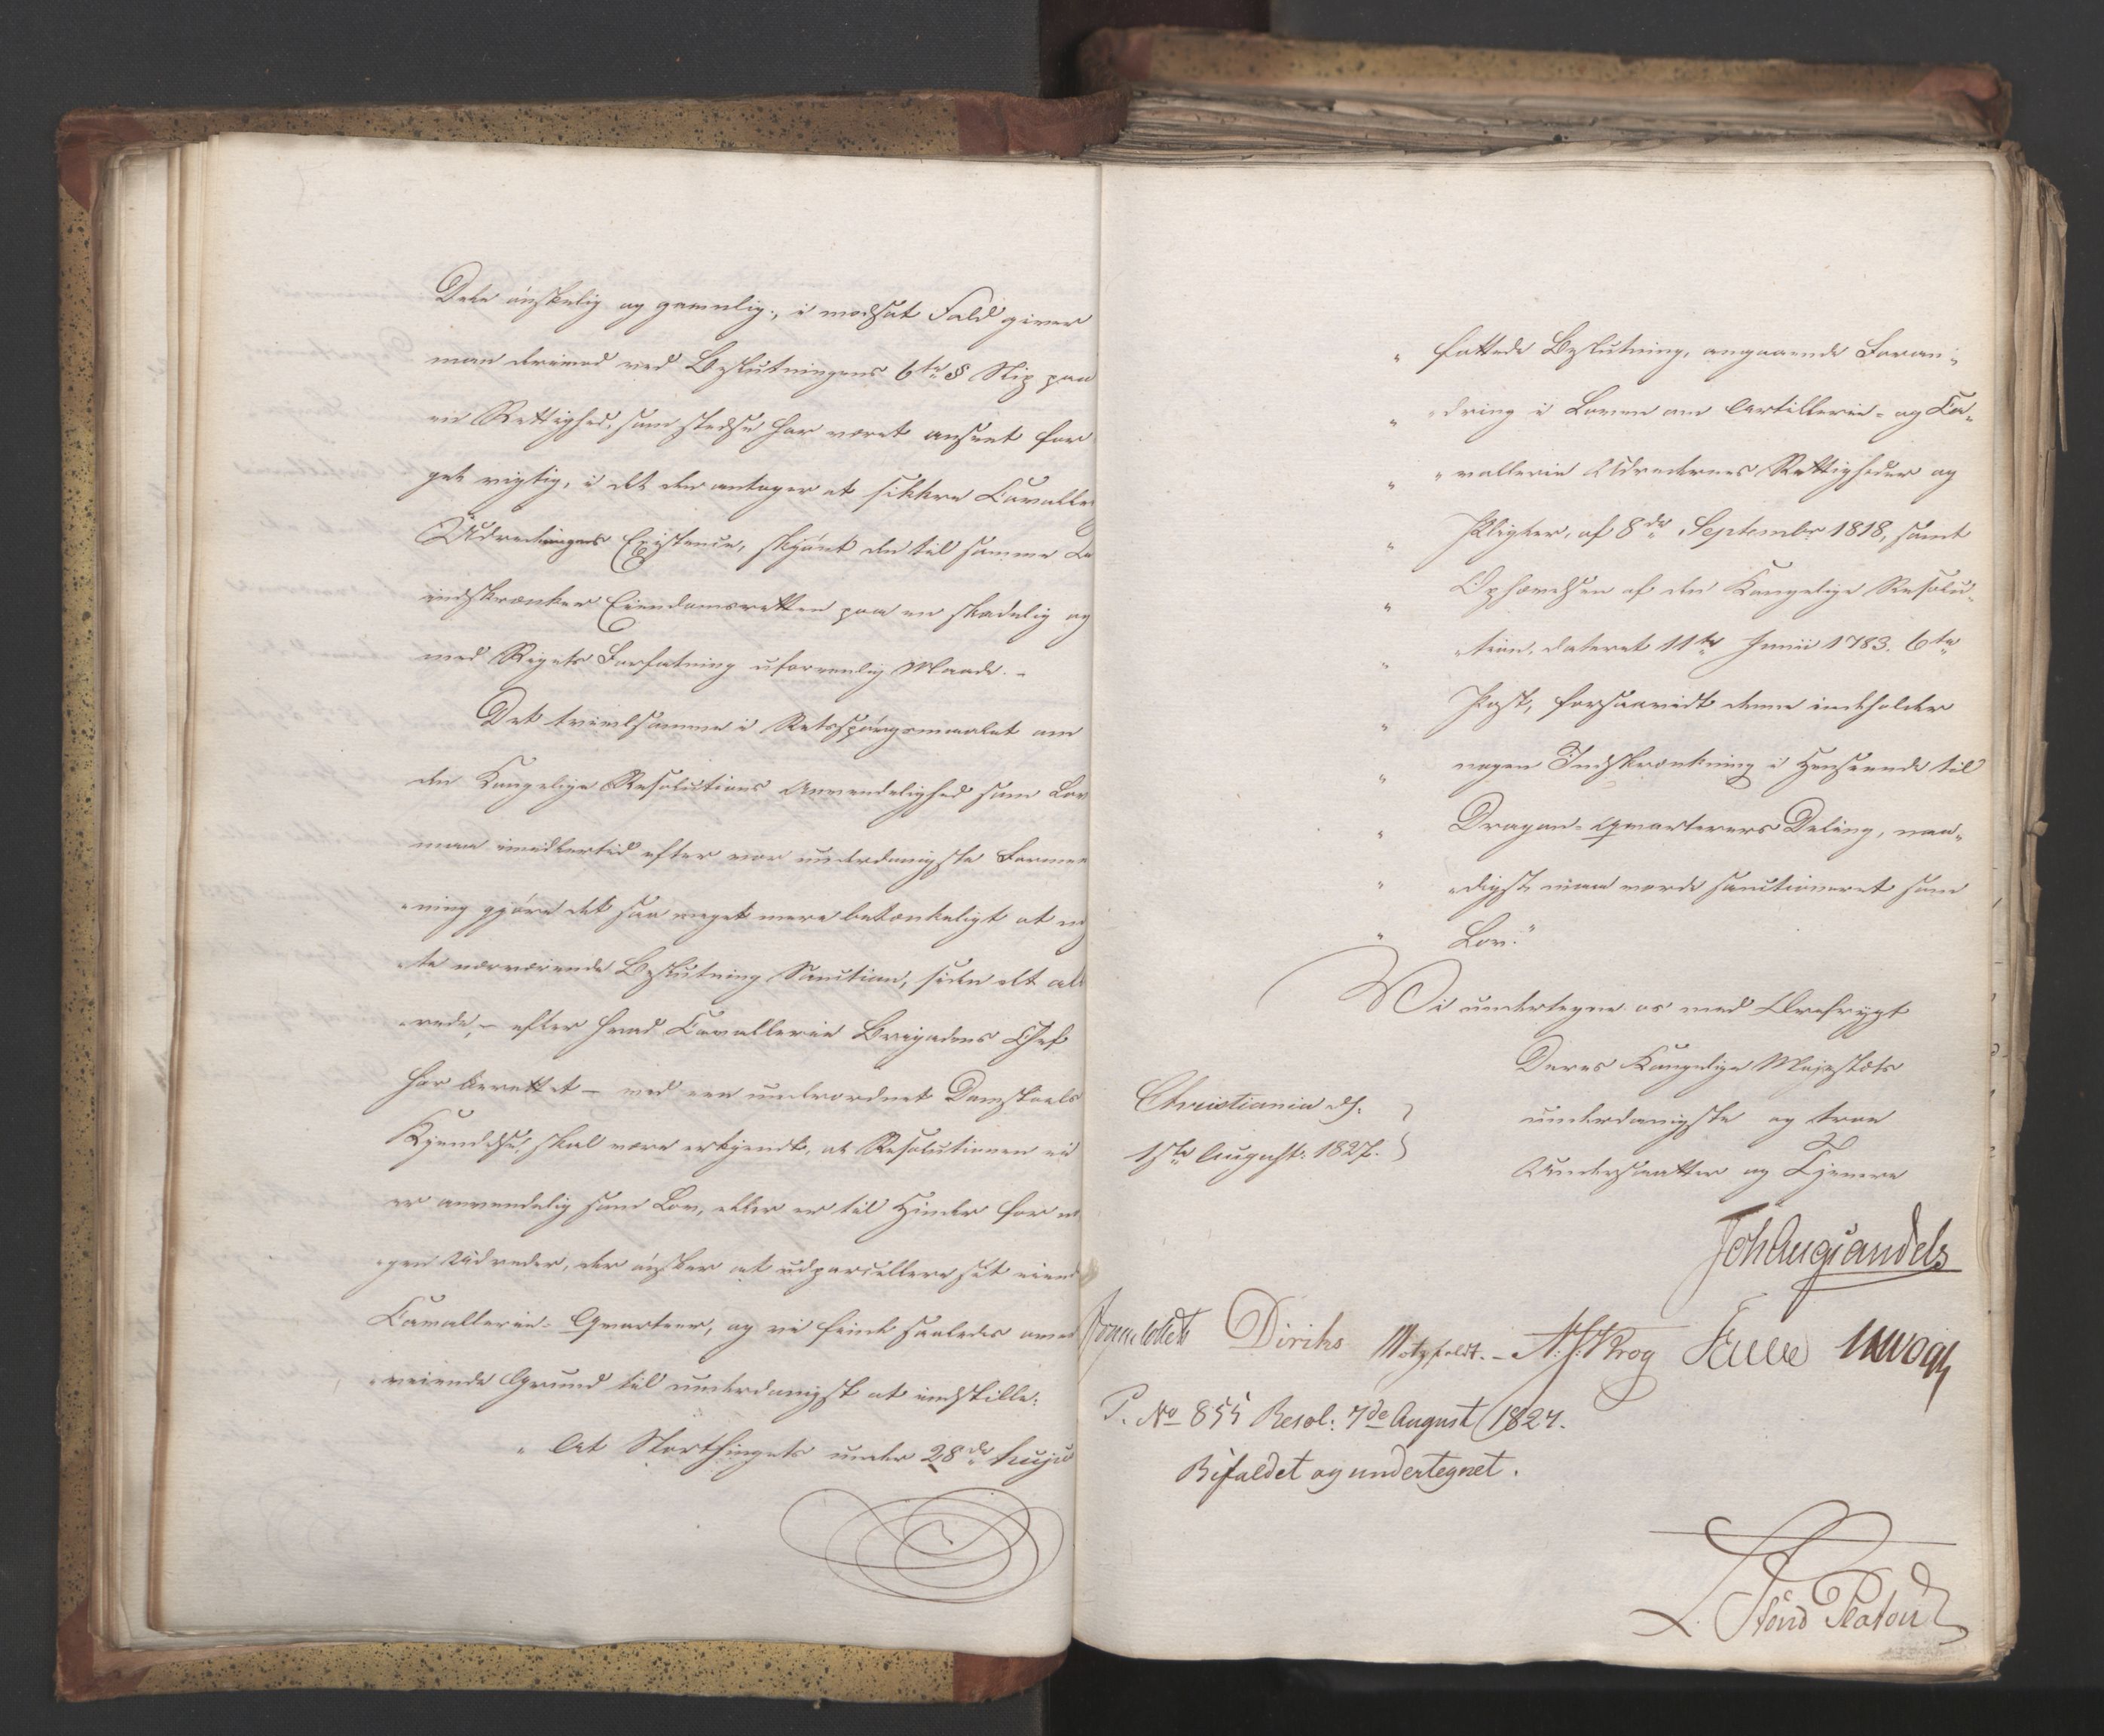 Dele ønskelig og gavnlig; i modsat Fald giver
man derimod ved Beslutningens 6te § Slip paa
en Rettighed, som stedse har været anseet for
get vigtig, i det den antages at sikkre Cavalle
Udredningens Existence, skjønt den til samme
indskrænker Eiendomsretten paa en skadelig og
med Rigets Forfatning uforenelig Maade. -
Det tvivlsomme i Retsspørgsmaalet om
den Kongelige Resolutions Anvendelighed som Lov
maa imidlertid efter vor underdanigste Formee
-ning gjøre det saa meget mere betænkeligt at næg
-te nærværende Beslutning Sanction, siden det al
-rede, - efter hvad Cavallerie Brigadens Chef
har berettet - ved een underordnet Domstoels
Kjendelse, skal være erkjendt, at Resolutionen ei
er anvendelig som Lov, eller er til Hinder for no
-gen Udreder, der ønsker at udparcellere sit eiend
Cavallerie-Qvarteer, og vi finde saaledes over
-veiende Grund til underdanigst at indstille:
„ At Storthingets under 28de huju
„ fattede Beslutning, angaaende Foran-
„ -dring i Loven om Artillerie- og Ca-
„ -vallerie Udredernes Rettigheder og
„ Pligter, af 8de September 1818, samt
„ Ophævelsen af den Kongelige Resolu-
„ -tion, dateret 11te Junii 1783. 6te
„ Post, forsaavidt denne indeholder
„ nogen Indskrænkning i Henseende til
„ Dragon-Qvarterers Deling, naa-
„ -digst maa vorde sanctioneret som
„ Lov."
Vi undertegne os med Ærefrygt
Deres Kongelige Majestæts
Christiania d.
underdanigste og troe
1ste August: 1827.
Undersaatter og Tjenere
Joh Aug Sandels
Diriks Motzfeldt. - N. J. Krog
P. No 855 Resol: 7de August 1827.
Bifaldet og undertegnet.